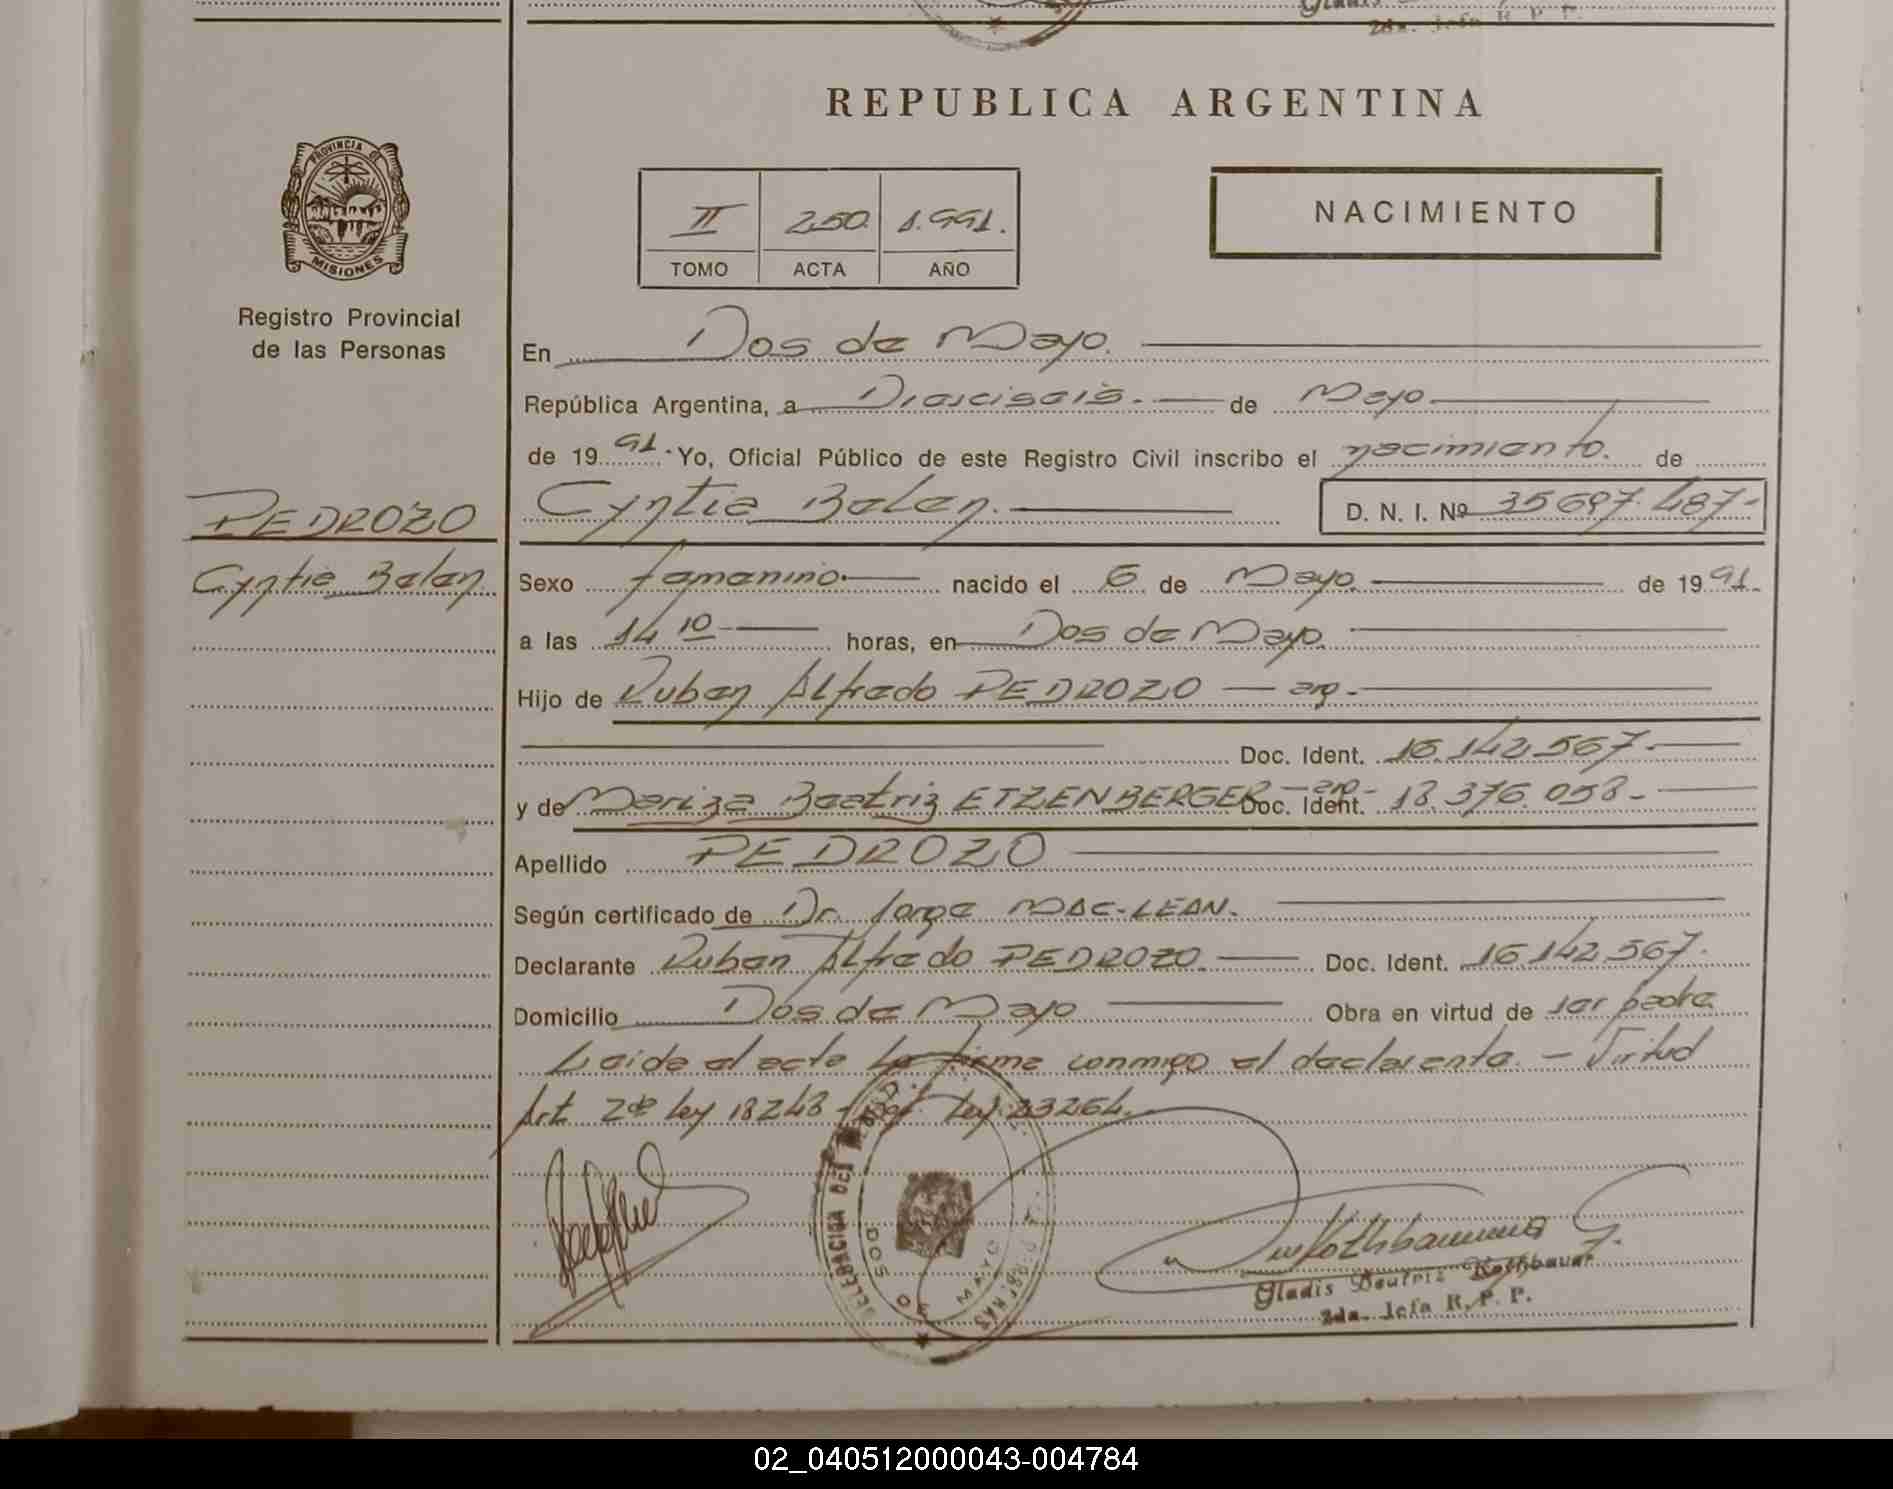 Gladis
2da. Jefa R. P. P.
REPUBLICA ARGENTINA
PROVINCIA DE
MISIONES
Registro Provincial
de las Personas
II 250. 1.991.
TOMO ACTA AÑO
NACIMIENTO
En Dos de Mayo.
República Argentina, a Dieciseis. de Mayo
de 1991. Yo, Oficial Público de este Registro Civil inscribo el nacimiento. de
PEDROZO
Cyntia Belen. D. N. I. Nº 35697.487-
Cyntia Belen.
Sexo femenino nacido el 6 de Mayo. de 1991.
a las 14 10 horas, en Dos de Mayo.
Hijo de Ruben Alfredo PEDROZO — arg.
Doc. Ident. 16.142.567.
y de Mariza Beatriz ETZENBERGER — arg. Doc. Ident. 18.376.058.
Apellido PEDROZO
Según certificado de Dr. Jorge MAC-LEAN.
Declarante Ruben Alfredo PEDROZO. Doc. Ident. 16.142.567.
Domicilio Dos de Mayo Obra en virtud de ser padre
Leida el acta la firma conmigo el declarante. — Virtud
Art. 2do Ley 18248 Ley 23264.
DOS DE MAYO
Gladis Beatriz Rothbauer
2da. Jefa R. P. P.
02_040512000043-004784